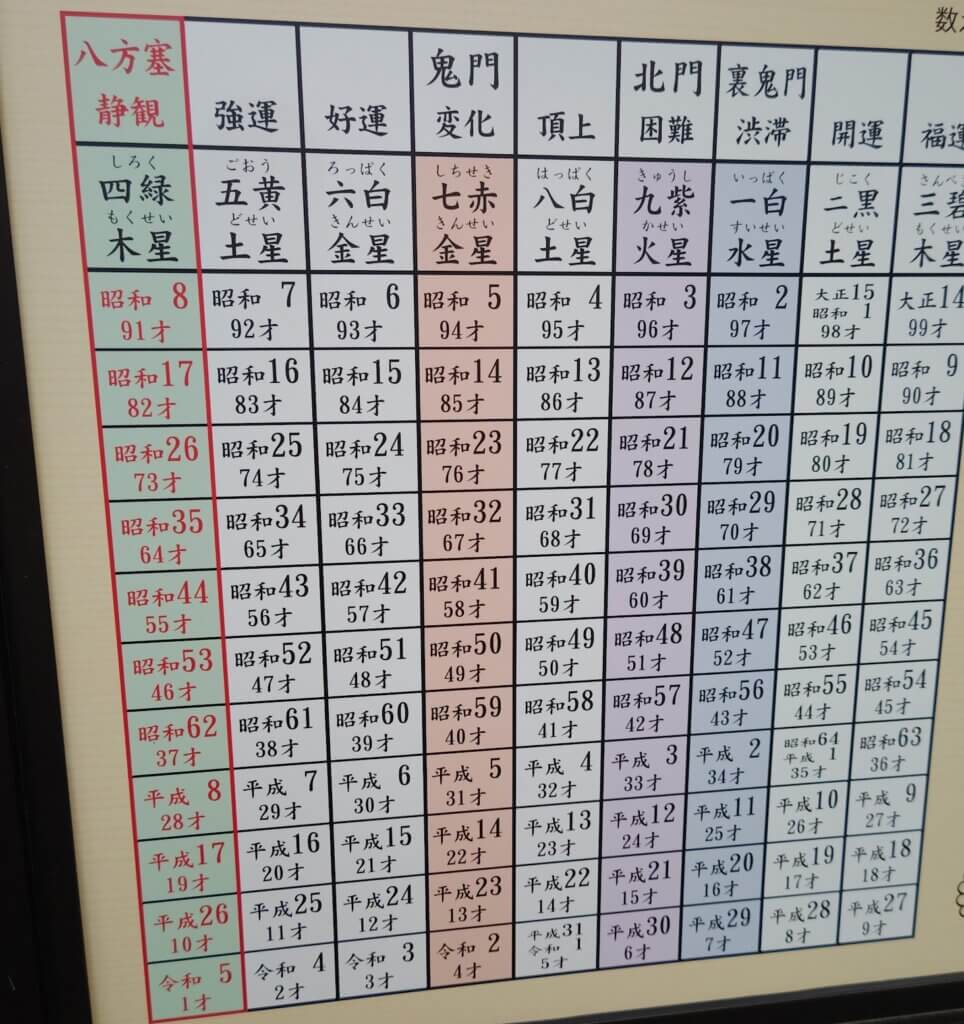 数
八方塞 鬼門 北門 裏鬼門
静観 強運 好運 変化 頂上 困難 渋滞 開運 福
しろく ごおう ろっぱく しちせき はっぱく きゅうし いっぱく じこく さんぺ
四緑 五黄 六白 七赤 八白 九紫 一白 二黒 三碧
もくせい どせい きんせい きんせい どせい かせい すいせい どせい もくせ
木星 土星 金星 金星 土星 火星 水星 土星 木星
昭和 8 昭和 7 昭和 6 昭和 5 昭和 4 昭和 3 昭和 2 大正15 昭和 1 大正14
91才 92才 93才 94才 95才 96才 97才 98才 99才
昭和17 昭和16 昭和15 昭和14 昭和13 昭和12 昭和11 昭和10 昭和 9
82才 83才 84才 85才 86才 87才 88才 89才 90才
昭和26 昭和25 昭和24 昭和23 昭和22 昭和21 昭和20 昭和19 昭和18
73才 74才 75才 76才 77才 78才 79才 80才 81才
昭和35 昭和34 昭和33 昭和32 昭和31 昭和30 昭和29 昭和28 昭和27
64才 65才 66才 67才 68才 69才 70才 71才 72才
昭和44 昭和43 昭和42 昭和41 昭和40 昭和39 昭和38 昭和37 昭和36
55才 56才 57才 58才 59才 60才 61才 62才 63才
昭和53 昭和52 昭和51 昭和50 昭和49 昭和48 昭和47 昭和46 昭和45
46才 47才 48才 49才 50才 51才 52才 53才 54才
昭和62 昭和61 昭和60 昭和59 昭和58 昭和57 昭和56 昭和55 昭和54
37才 38才 39才 40才 41才 42才 43才 44才 45才
平成 8 平成 7 平成 6 平成 5 平成 4 平成 3 平成 2 昭和64 平成 1 昭和63
28才 29才 30才 31才 32才 33才 34才 35才 36才
平成17 平成16 平成15 平成14 平成13 平成12 平成11 平成10 平成 9
19才 20才 21才 22才 23才 24才 25才 26才 27才
平成26 平成25 平成24 平成23 平成22 平成21 平成20 平成19 平成18
10才 11才 12才 13才 14才 15才 16才 17才 18才
令和 5 令和 4 令和 3 令和 2 平成31 令和 1 平成30 平成29 平成28 平成27
1才 2才 3才 4才 5才 6才 7才 8才 9才